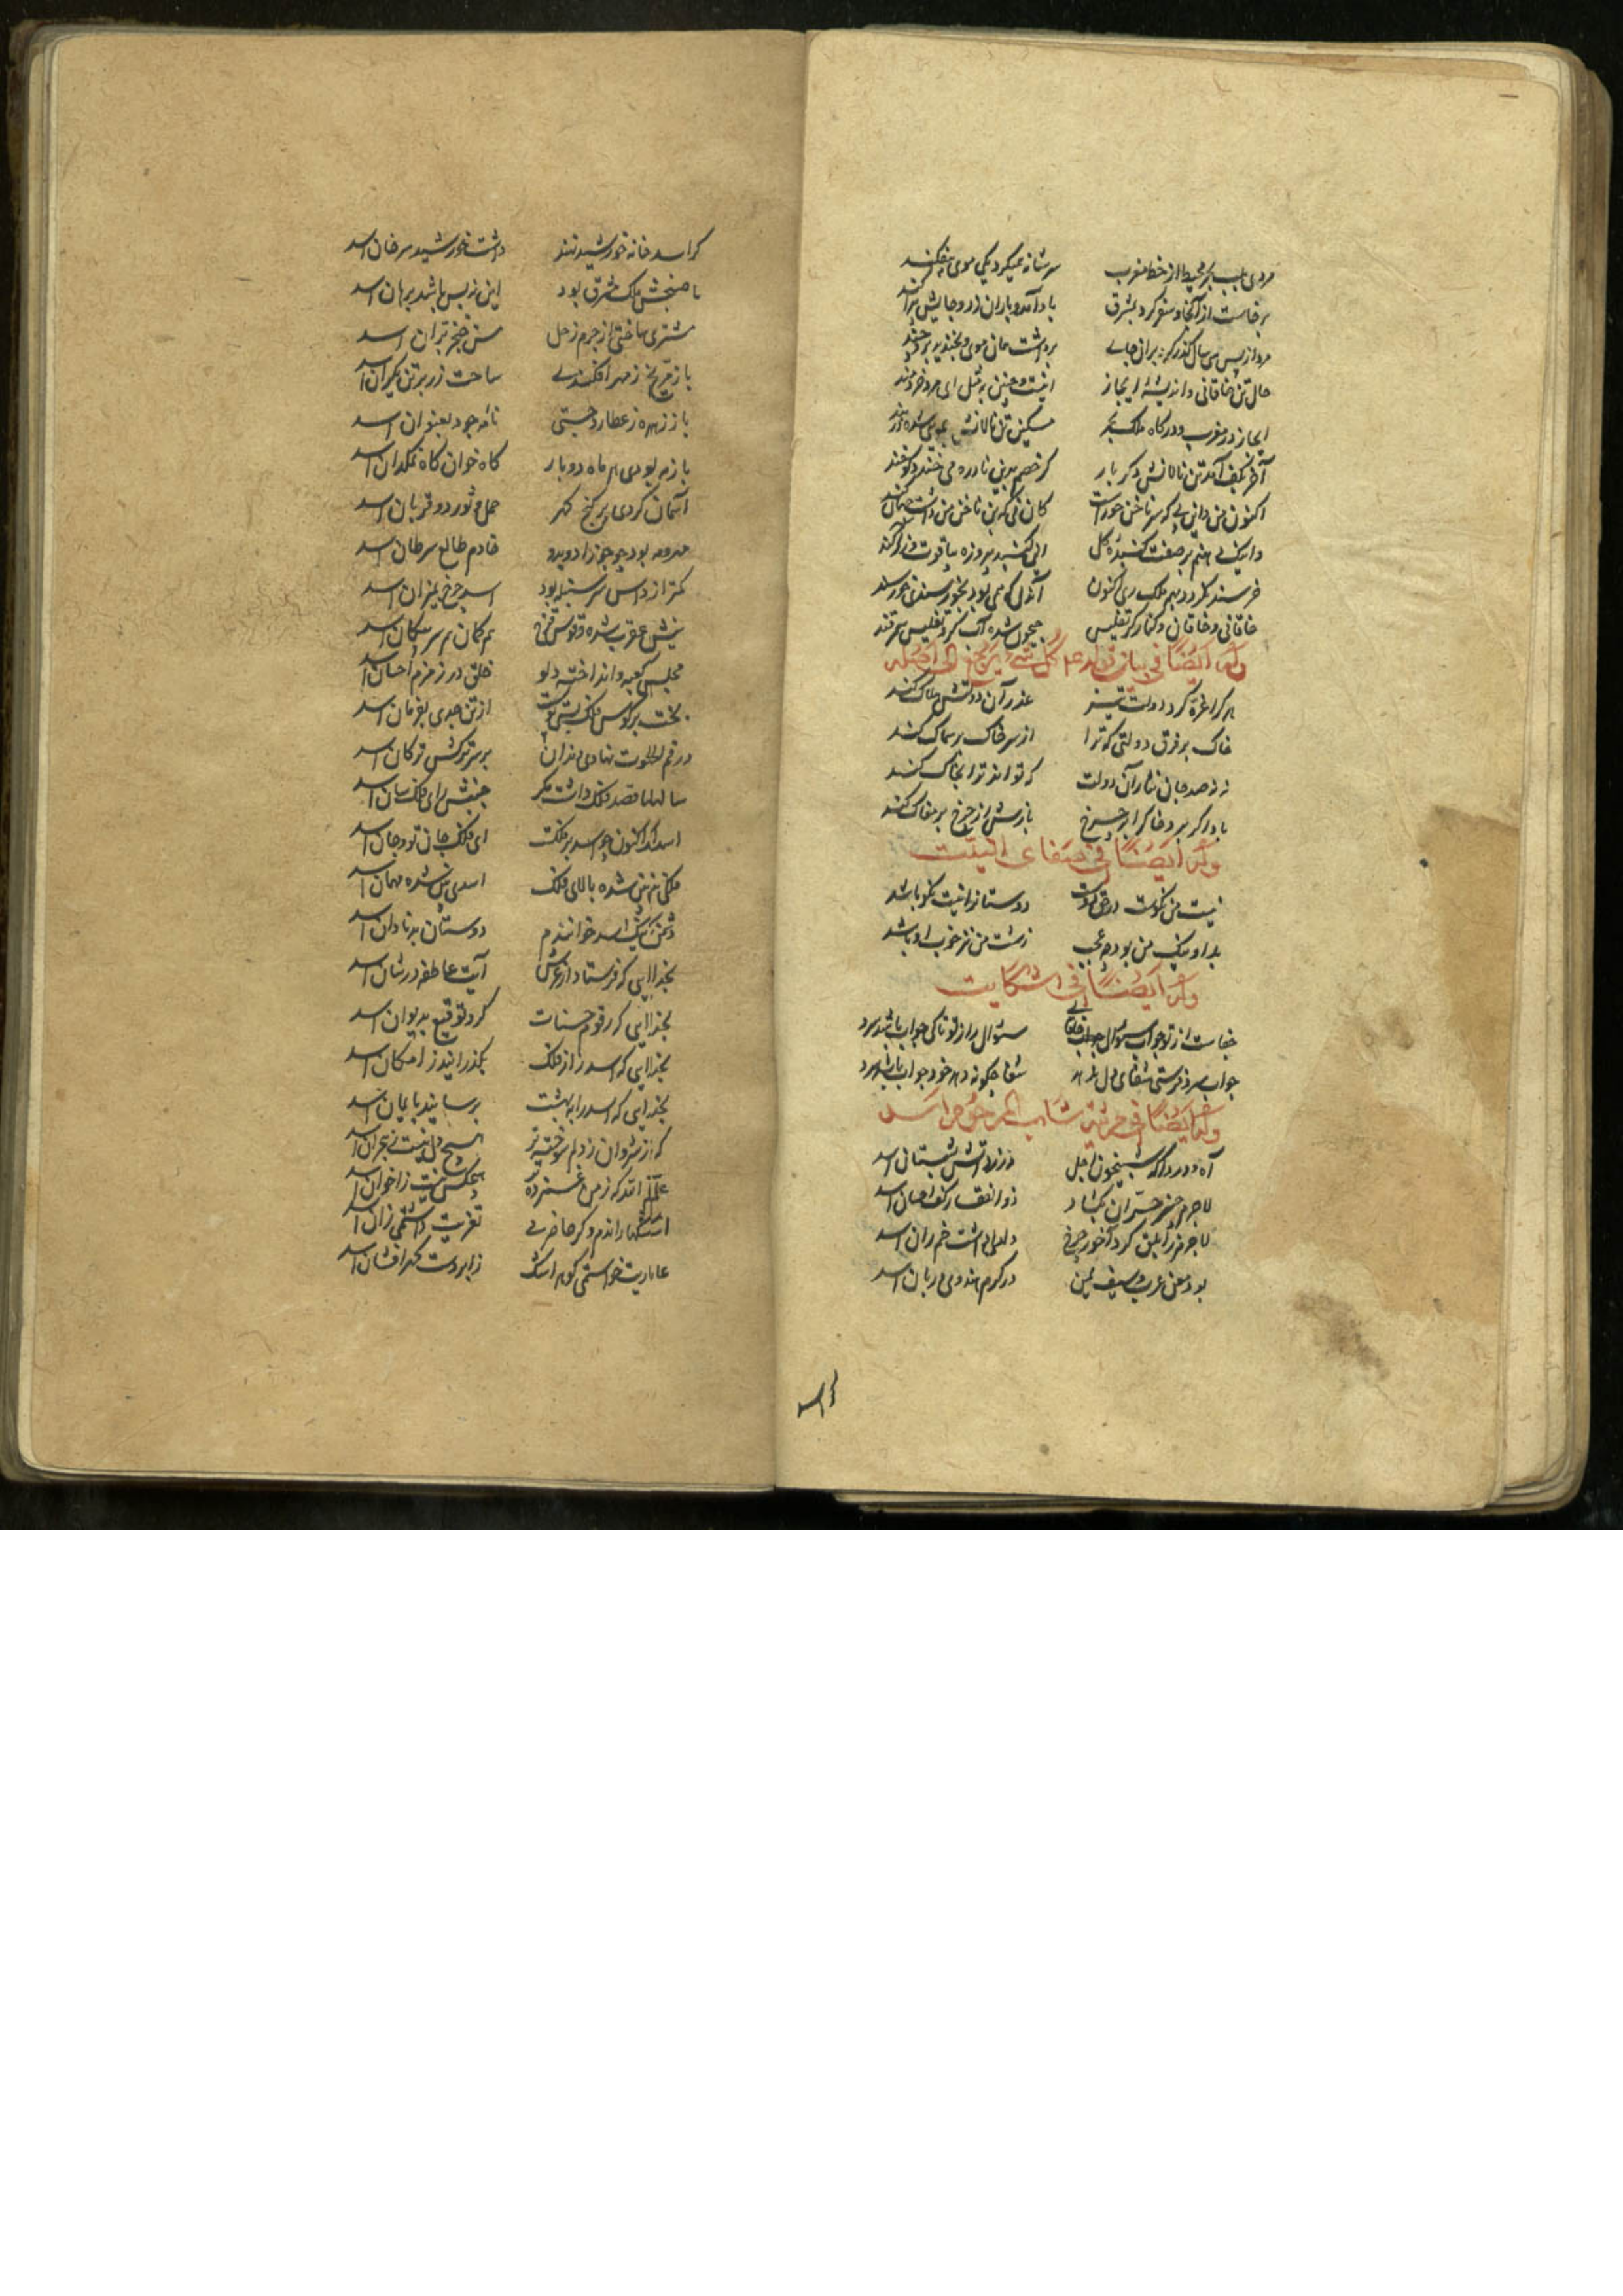 مردی بلب بحر محیط از خط مغرب سر شانه همیکرد یکی موی بیفکند
برخاست از آنجا و سفر کرد بمشرق باد آمد و باران زد و جایش بپراکند
مرد از پس سی سال گذر کرد بران جای برداشت همان موی و بخندید بر
حال تن خاقانی و اندیشهٔ ابخاز اینست و چنین به مثل ای مرد خردمند
ابخاز در مغرب و درگاه ملک بحر مسکین تن نالانش بمویی شده مانند
آخر بکف آمد تن نالانش دگر بار گر خصم بدین نادره می خندد گو خند
اکنون من و این پی که سر ناخن حوراست کان نی که بن ناخن من داشت
واینک پی هنم بر صفت گنبدهٔ گل این گنبد پیروزه بیاقوت
خرسند نگردد بهمه ملک ری اکنون آن دل که همی بود بخورسندی خورسند
خاقانی و خاقان و کنار کر و تفلیس جیحون شده آب کر و تفلیس سمرقند
وله ایضا فی بیان کل شی یرجع الی اصله
هر که را غره کرد دولت تیز عذر آن دولتش هلاک کند
خاک بر فرق دولتی که ترا از سر خاک بر سماک کند
نه نه صد جان نثار آن دولت که تواند ترا بخاک کند
باد اگر برد خاک را بر چرخ بازش از چرخ بر مغاک کند
وله ایضا فی صفای النیت
نیت من نکوست در حق دوست دوستانرا نیت نکو باشد
بد او نیک من بود چه عجب زشت من نیز خوب او باشد
وله ایضا فی الشکایت
جفاست از تو جواب سؤال خاقانی سئوال را ز تو تا کی جواب باشد سرد
جواب سرد فرستی شفای دل شفا چگونه دهد خود جواب باشد سرد
وله ایضا فی مرثیه
آه و دردا که شبیخون اجل در زد آتش بشبستان اسد
لاجرم خنجر حران بگشاد ذو الفقار کف احسان اسد
لاجرم زابلق گرد آخور چرخ دلدلی داشت خم ران اسد
بود معن عرب و سیف یمن در کرم هندوی دربان اسد
اسد
گر اسد خانه خورشید نهند داشت خورشید سر خان اسد
تا صبحش ملک شرق بود این ز پس باشد برهان اسد
مشتری ساختی از جرم زحل سن خنجر بران اسد
باز مریخ ز مهر افکندی ساخت زر بر تن یکران اسد
باز زهره ز عطارد جستی نامه جود بعنوان اسد
باز مه بودی هر ماه دو بار گاه خوان گاه نمکدان اسد
آسمان کردی بر گنج گهر حمل و ثور دو قربان اسد
مه و مه بود چو جوزا دو بدو خادم طالع سرطان اسد
کمتر از داس سر سنبله بود اسد چرخ بمیزان اسد
نیش عقرب شده و قوس قزح هم کمان هم سر پیکان اسد
مجلسی کعبه و انداخته دلو خلق در زمزم احسان اسد
بخت بر کوس فلک بستی پوست از تن جدی بفرمان اسد
در رقم الحوت نهادی دندان بر سر ترکش ترکان اسد
سالها قصد فلک داشت مگر جنبش رای فلک سان اسد
اسد اکنون چو اسد بر فلکست ای فلک جان تو و جان اسد
فلکی زیر زمین شده بالای فلک اسدی بین شده مهمان اسد
دشمن نیک اسد خوانندم دوستان بد نادان اسد
بخدایی که فرستاد از عرش آیت عاطفه در شان اسد
بخدایی که رقوم حسنات کرد توقیع بدیوان اسد
بخدایی که اسد را ز فلک بگذرانید ز امکان اسد
بخدایی که اسد را به بهشت برسانید بایمان اسد
که از شروان ز دلم سوخته تر هیچ دل نیست ز هجران اسد
علم الله که ز من غمزده تر هیچکس نیست ز اخوان اسد
اشکها راندم و گر حاضرمی تعزیت داشتمی زان اسد
عاریت خواستمی گوهر اشک ز ابر دست گهر افشان اسد